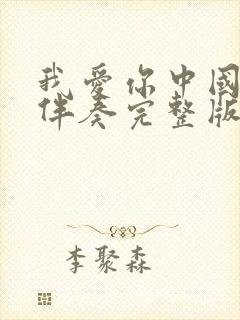 我愛你中國
伴奏完整版
李聚森